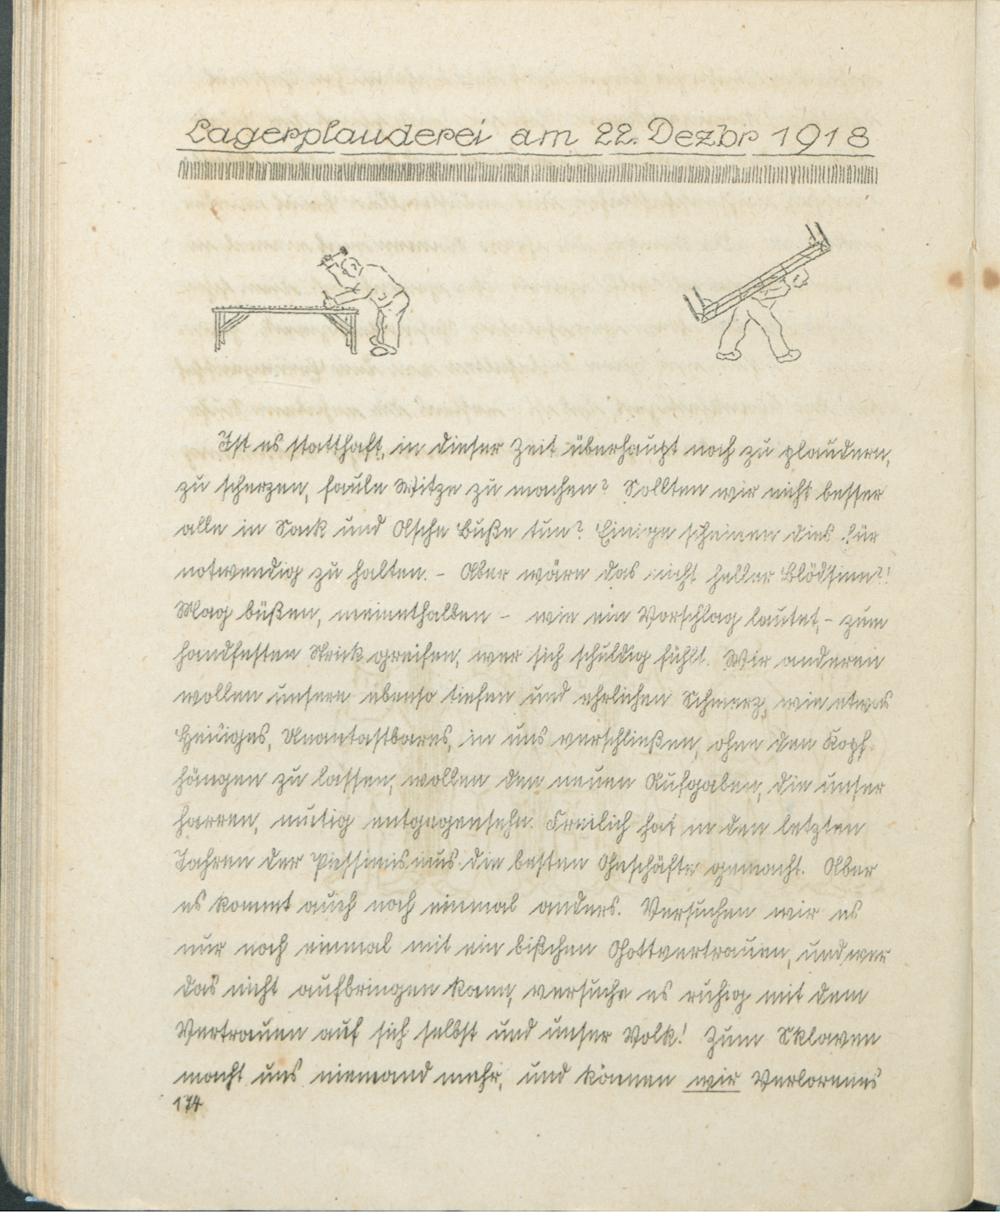 Lagerplauderei am 22. Dezbr 1918
Ist es statthaft, in dieser Zeit überhaupt noch zu plaudern,
zu scherzen, faule Witze zu machen? Sollten wir nicht besser
alle in Sack und Asche Buße tun? Einige scheinen dies für
notwendig zu halten. - Aber wäre das nicht heller Blödsinn?!
Mag büßen, meinethalben - wie ein Vorschlag lautet, - zum
handfesten Strick greifen, wer sich schuldig fühlt. Wir anderen
wollen unsern ebenso tiefen und ehrlichen Schmerz, wie etwas
Heiliges, Unantastbares, in uns verschließen, ohne den Kopf
hängen zu lassen, wollen den neuen Aufgaben, die unser
harren, mutig entgegensehn. Freilich hat in den letzten
Jahren der Pessimismus die besten Geschäfte gemacht. Aber
es kommt auch noch einmal anders. Versuchen wir es
nur noch einmal mit ein bißchen Gottvertrauen, und wer
das nicht aufbringen kann, versuche es ruhig mit dem
Vertrauen auf sich selbst und unser Volk! Zum Sklaven
macht uns niemand mehr, und können wir Verlorenes
174